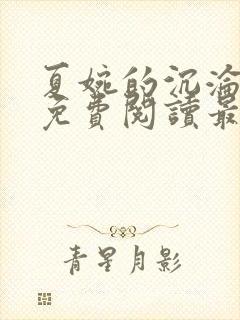 夏婉的沉淪
免費閱讀最
青星月影